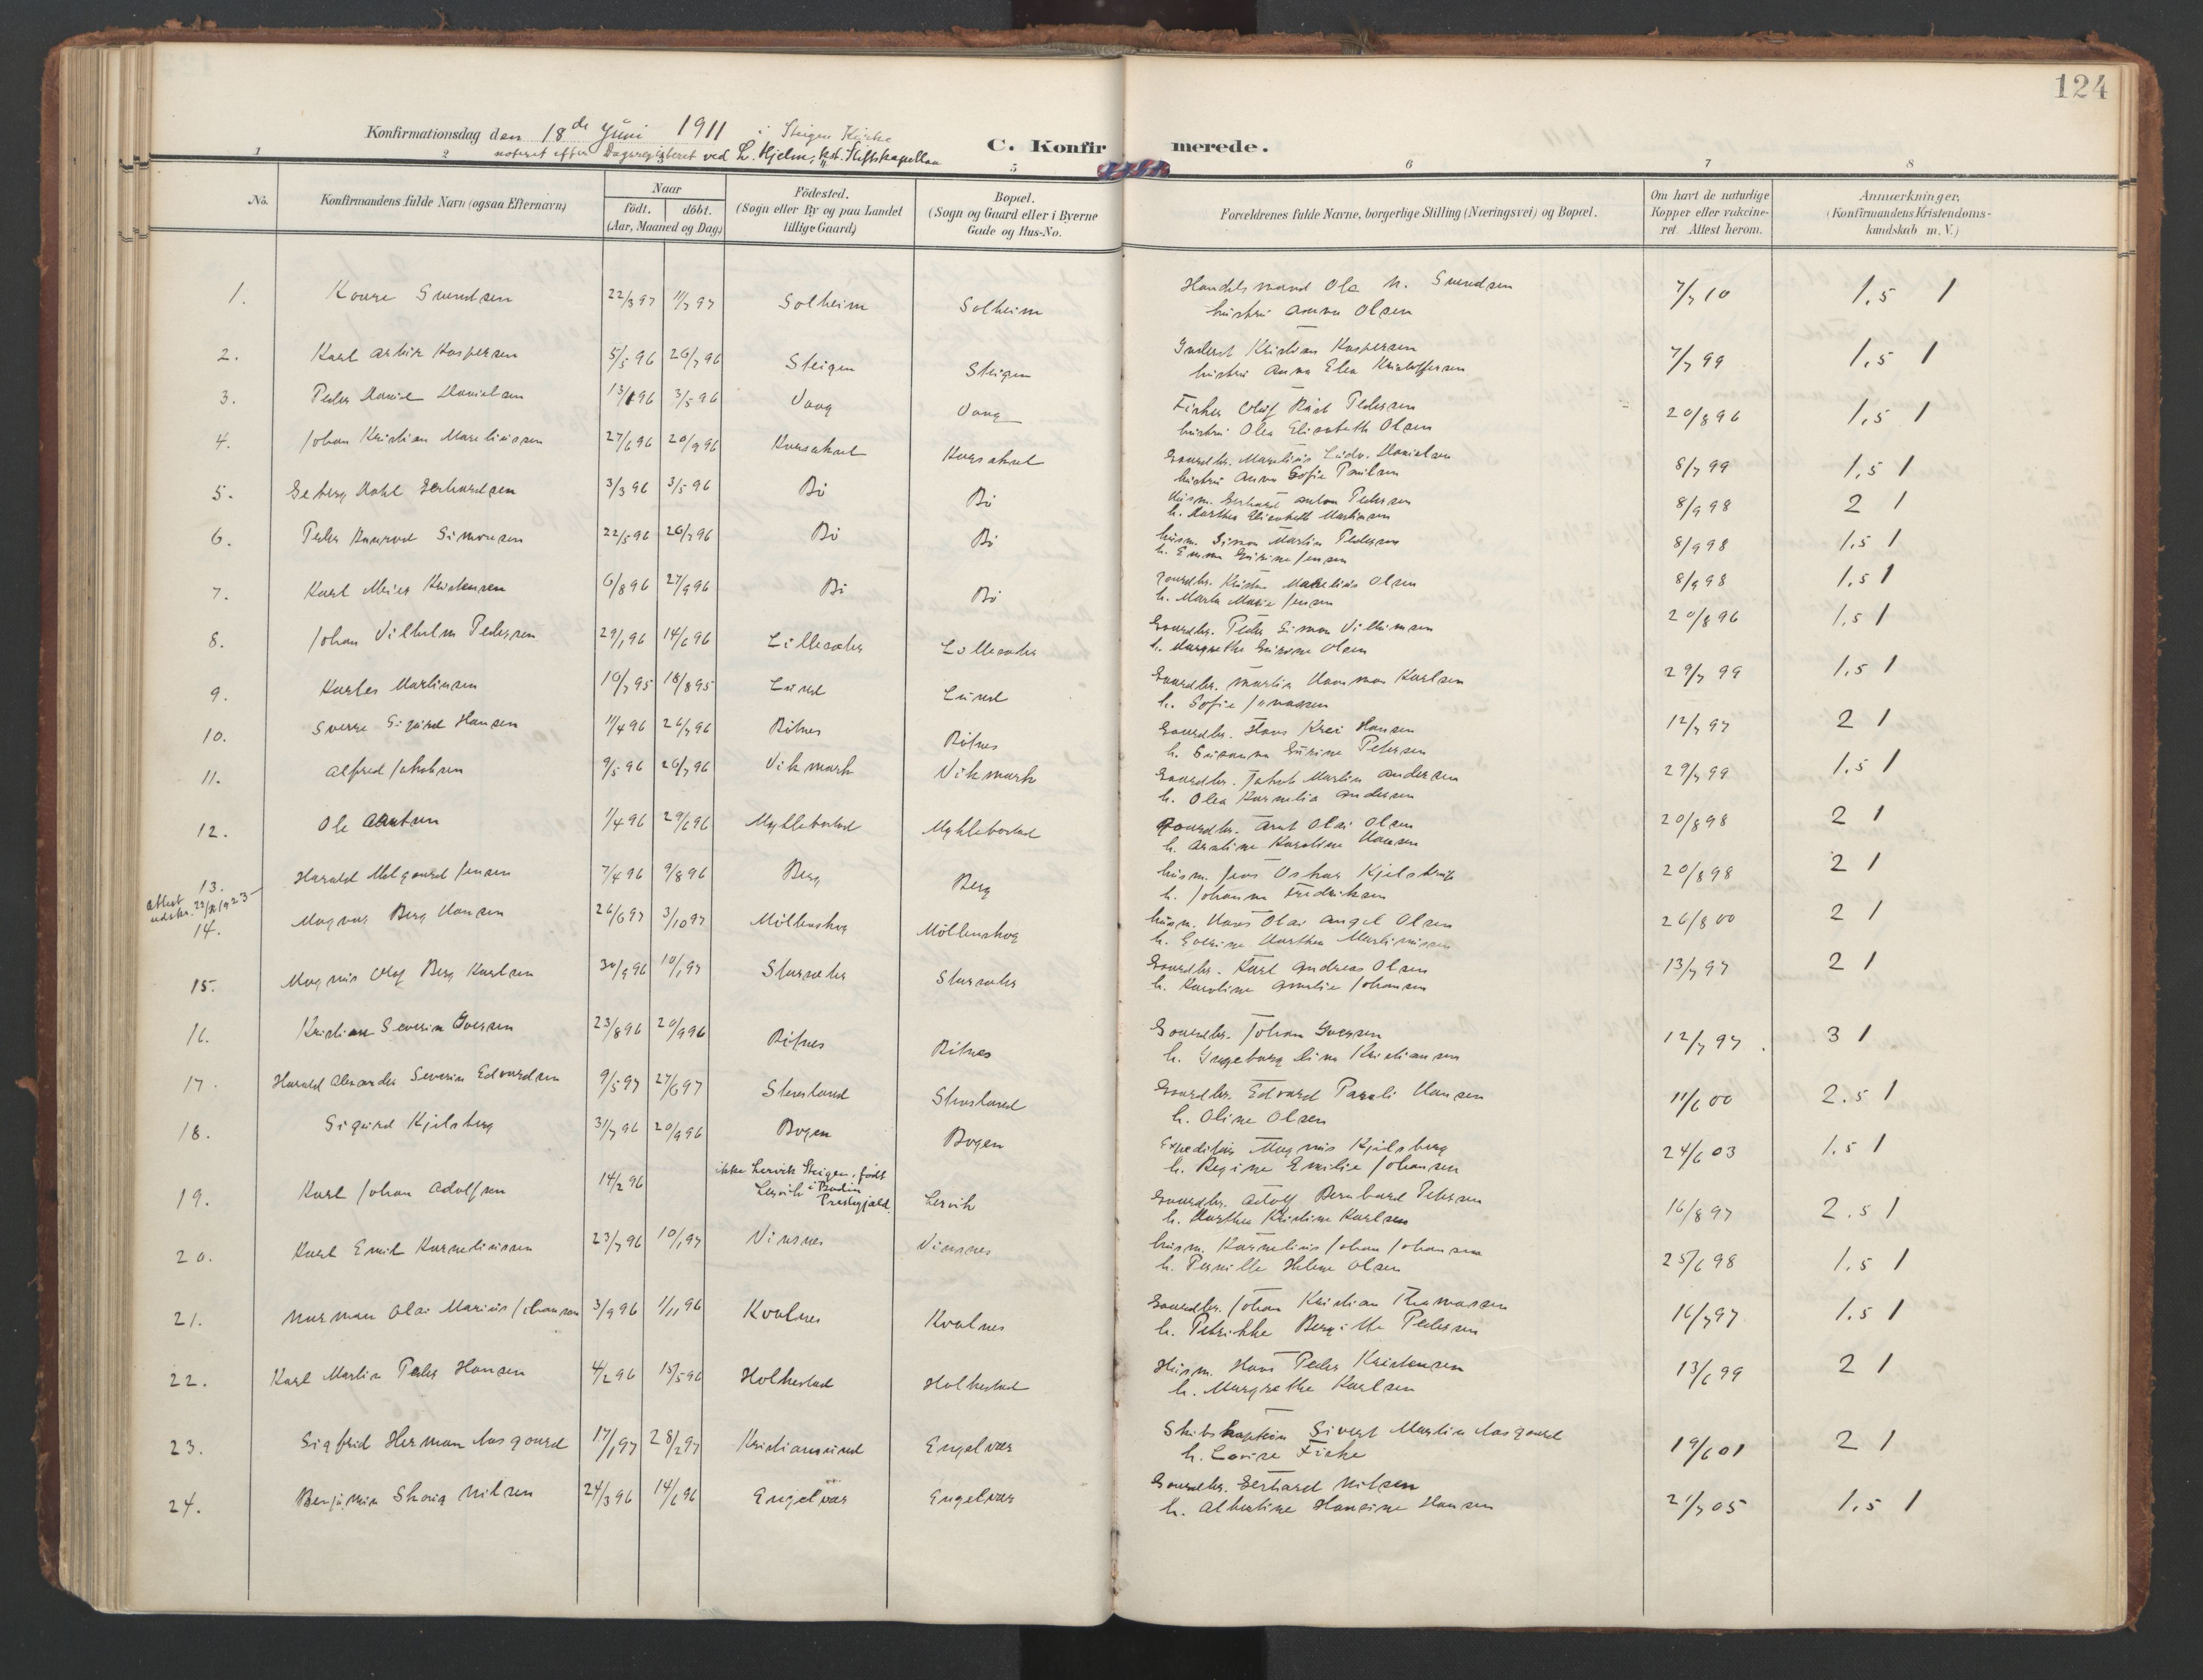 124
Konfirmationsdag den 18de Juni 1911 i Steigen Kirke
noteret efter Dagsregisteret ved L. Hjelm, kst. Stiftskapellan
C. Konfirmerede.
1 2 5 6 7 8
No.
Konfirmandens fulde Navn (ogsaa Efternavn)
Naar
födt. döbt.
(Aar, Maaned og Dag)
Födested.
(Sogn eller By og paa Landet
tillige Gaard)
Bopæl.
(Sogn og Gaard eller i Byerne
Gade og Hus-No.
Forældrenes fulde Navne, borgerlige Stilling (Næringsvei) og Bopæl.
Om havt de naturlige
Kopper eller vakcine-
ret. Attest herom.
Anmærkninger,
(Konfirmandens Kristendoms-
kundskab m. V.)
1. Kaare Svendsen 22/3 97 11/7 97 Solheim Solheim Handelsmand Ole N. Svendsen 7/7 10 1,5 1
hustru Anna Olsen
2. Karl Artur Kaspersen 5/5 96 26/7 96 Steigen Steigen Inderst Kristian Kaspersen 7/7 99 1,5 1
hustru Anna Elea Kristoffersen
3. Peder Daniel Danielsen 13/1 96 3/5 96 Vaag Vaag Fisker Oluf Pedersen 20/8 96 1,5 1
hustru Olea Elisabeth Olsen
4. Johan Kristian Mareliussen 27/6 96 20/9 96 Gaardbr. Marelius Ludv. Danielsen 8/7 99 1,5 1
hustru Anna Sofie Paulsen
5. Dahl Gerhardsen 3/3 96 3/5 96 Bö Bö Husm. Gerhard Anton Pedersen 8/9 98 2 1
h. Marthea Elisabeth Martinsen
6. Peder Simonsen 22/5 96 26/7 96 Bö Bö husm. Simon Martin Pedersen 8/9 98 1,5 1
h. Emma Gurine Jensen
7. Karl Meier Kristensen 6/8 96 27/9 96 Bö Bö gaardbr. Kristen Marelius Olsen 8/9 98 1,5 1
h. Marta Marie Jensen
8. Johan Vilhelm Pedersen 29/1 96 14/6 96 Gaardbr. Peder Simon 20/8 96 1,5 1
h. Margrethe Gurine Olsen
9. Martinsen 10/7 95 18/8 95 Lund Lund Gaardbr. Martin Karlsen 29/7 99 1,5 1
h. Sofie Jonassen
10. Sverre Sigurd Hansen 11/4 96 26/7 96 Bötnes Bötnes Gaardbr. Hans Krei Hansen 12/7 97 2 1
h. Susanna Gurine Petersen
11. Alfred Jakobsen 9/5 96 26/7 96 Vikmark Vikmark Gaardbr. Jakob Martin Andersen 29/7 99 1,5 1
h. Olea Kornelia Andersen
12. Ole Arntsen 1/4 96 29/6 96 Myklebostad Myklebostad Gaardbr. Arnt Olai Olsen 20/8 98 2 1
h. Karoline Hansen
13. Harald Jensen 7/4 96 9/8 96 Berg Berg husm. Jens Oskar 20/8 98 2 1
h. Johanna Fredriksen
attest
udstr. 1923
14. Magnus Berg Hansen 26/6 97 3/10 97 Möllenskog Möllenskog husm. Hans Olai Angel Olsen 26/8 00 2 1
h. Everine Marthea
15. Magnus Olaf Berg Karlsen 30/9 96 10/1 97 Gaardbr. Karl Andreas Olsen 13/7 97 2 1
h. Karoline Amalie Johansen
16. Kristian Severin Iversen 23/8 96 20/9 96 Bötnes Bötnes Gaardbr. Johan Iversen 12/7 97 3 1
h. Ingeborg Dina Kristiansen
17. Harald Alexander Severin Edvardsen 9/5 97 27/6 97 Gaardbr. Edvard Hansen 11/6 00 2.5 1
h. Oline Olsen
18. Sigurd Kjelsberg 31/7 96 20/9 96 Bogen Bogen Expeditör Magnus Kjelsberg 24/6 03 1.5 1
h. Regine Emilie Johansen
19. Karl Johan Adolfsen 14/2 96 ikke Lervik Steigen, født Lervik i Bodin Prestegjeld. Lervik Gaardbr. Adolf Bernhard Petersen 16/8 97 2.5 1
h. Marthea Kristine Karlsen
20. Karl Emil Korneliussen 23/7 96 10/1 97 Vinsnes Vinsnes husm. Kornelius Johan Johansen 25/6 98 1.5 1
h. Pernille Helene Olsen
21. Norman Olai Marius Johansen 3/9 96 1/11 96 Kvalnes Kvalnes Gaardbr. Johan Kristian Thomassen 16/7 97 1.5 1
h. Petrikke Bergitte Pedersen
22. Karl Martin Peder Hansen 4/2 96 15/5 96 Holkestad Holkestad Husm. Hans Peder Kristensen 13/6 99 2 1
h. Margrethe Karlsen
23. Sigfrid Herman Aasgaard 17/1 97 28/2 97 Kristiansund Engelvær Skibskaptein Sivert Martin Aasgaard 19/6 01 2 1
h. Lovise Ficke
24. Benjamin Skaug Nilsen 24/3 96 14/6 96 Engelvær Engelvær Gaardbr. Gerhard Nilsen 21/7 05 1.5 1
h. Albertine Hansine Hansen